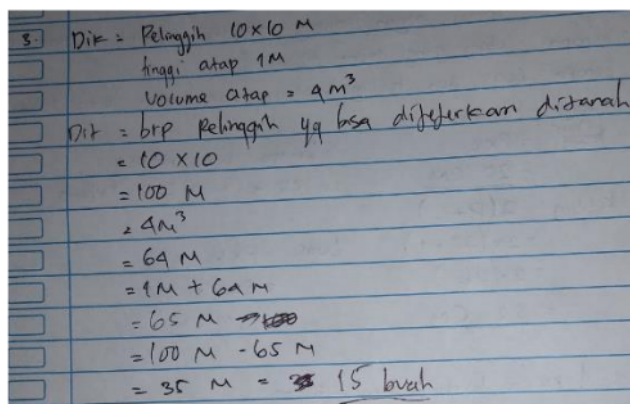 3. Dik = Pelinggih 10 x 10 M
tinggi atap 1M
Volume atap = 4 M³
Dit = brp Pelinggih yg bisa dijejerkan ditanah
= 10 x 10
= 100 M
= 4M³
= 64 M
= 1M + 64 M
= 65 M
= 100 M - 65 M
= 35 M = 15 buah